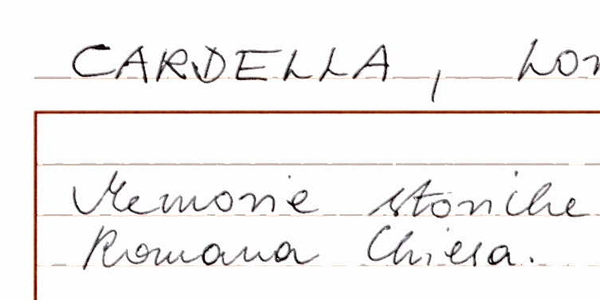 CARDELLA, Lor
Memorie storiche
Romana Chiesa.